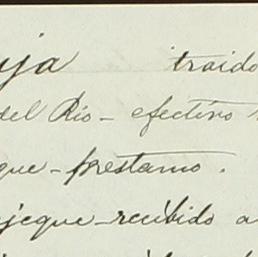 uja traido
del Rio - efectivo
que - prestamo.
jeque - recibido a